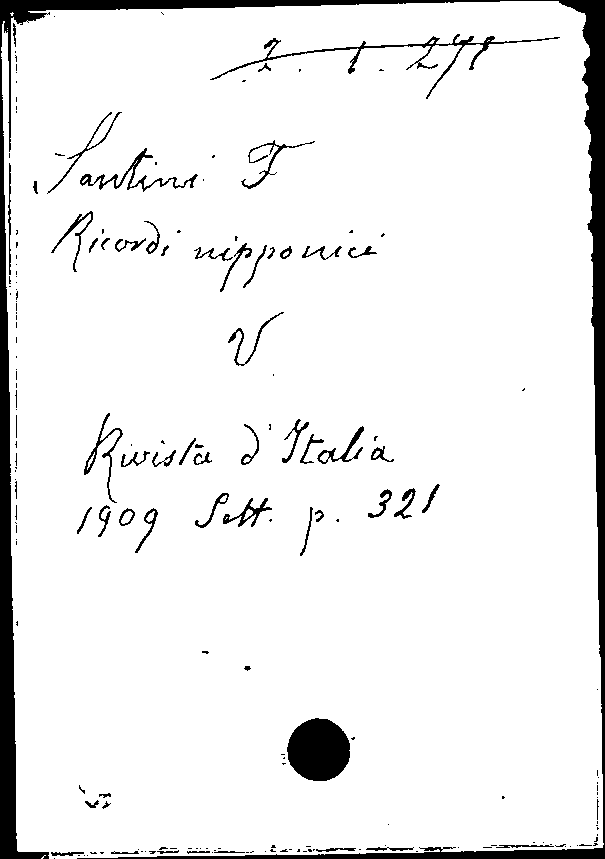 2. 1. 271
Santini F
Ricordi nipponici
V
Rivista d'Italia
1909 Sett. p. 321